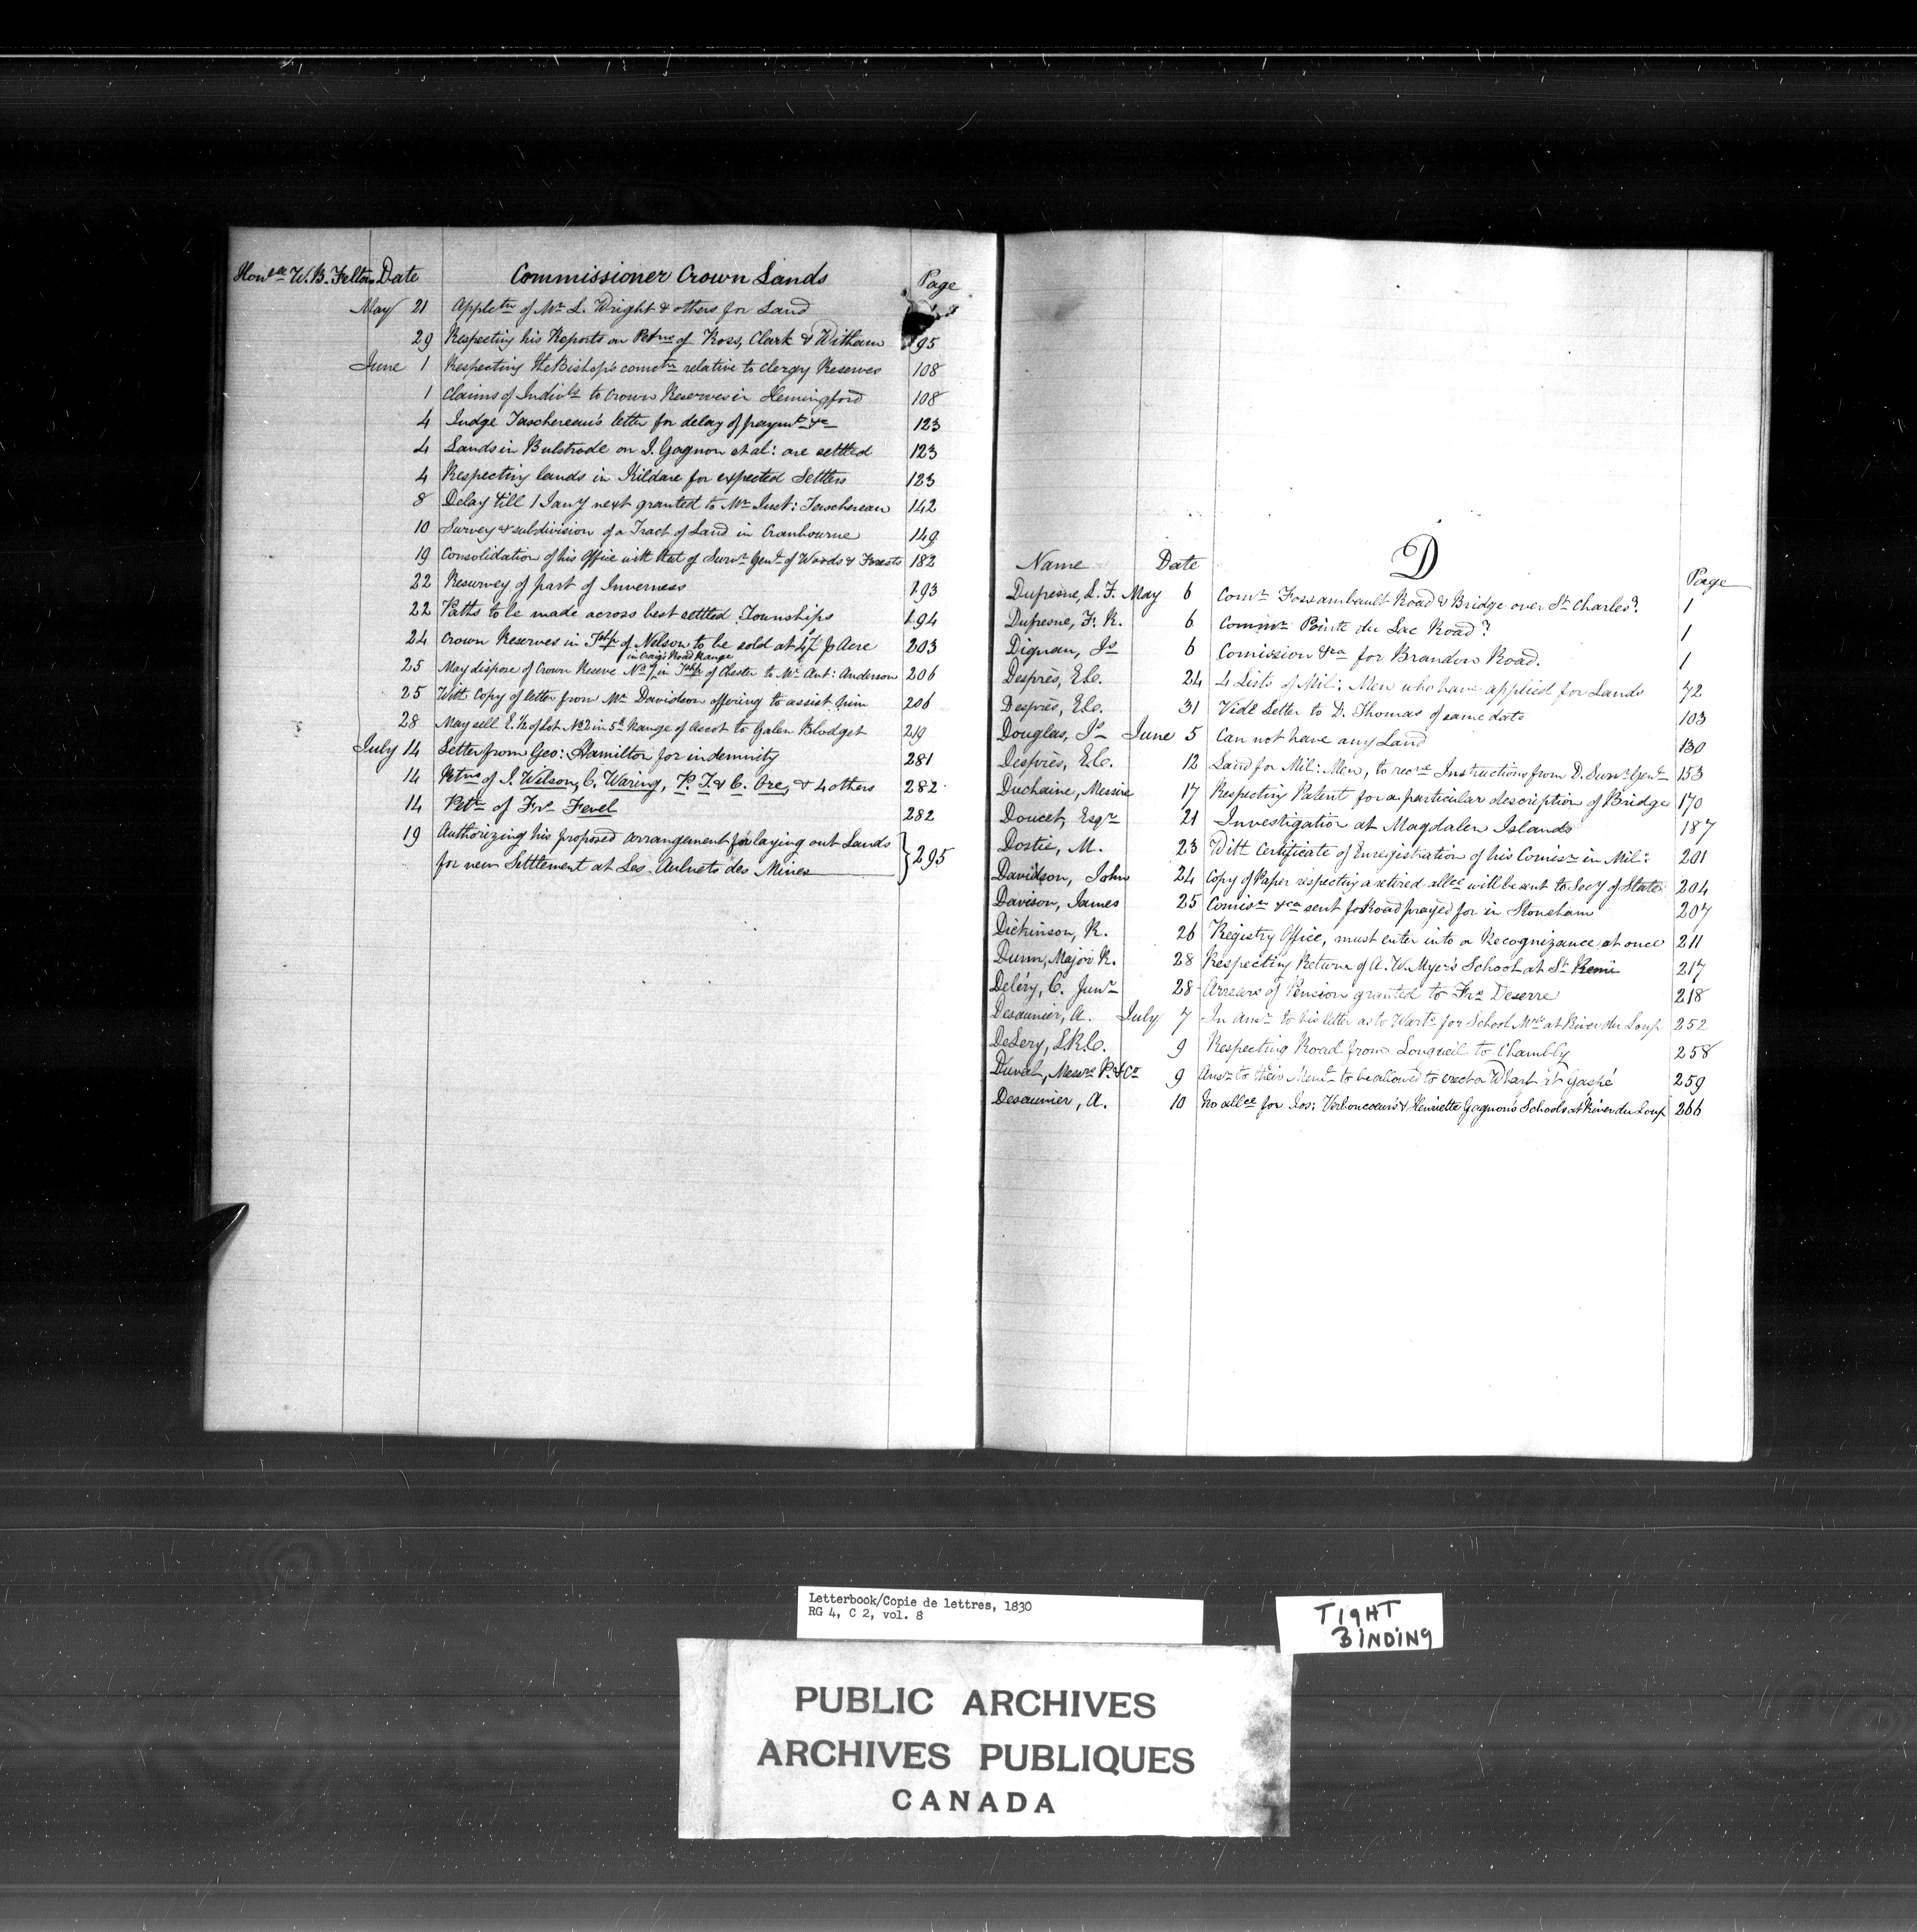 Honble W. B. Felton Date Commissioner Crown Lands Page
May 21 Applctn of Mr L. Wright & others for Land
29 Respecting his Reports on Petns of Ross, Clark & Witham 95
June 1 Respecting the Bishop's comctn relative to Clergy Reserves 108
1 Claims of Indivls to Crown Reserves in Hemingford 108
4 Judge Taschereau's letter for delay of paymt &c 123
4 Lands in Bulstrode on J. Gagnon et al: are settled 123
4 Respecting lands in Kildare for expected Settlers 123
8 Delay till 1 Jany next granted to Mr Just: Taschereau 142
10 Survey & subdivision of a Tract of Land in Cranbourne 149
19 Consolidation of his Office with that of Survr Genl of Woods & Forests 182
22 Resurvey of part of Inverness 193
22 Paths to be made across best settled Townships 194
24 Crown Reserves in Tshp of Nelson to be sold at 4/ p Acre 203
in Craig's Road Range
25 May dispose of Crown Reserve No 7 in Tshp of Chester to Mr Ant: Anderson 206
25 With Copy of letter from Mr Davidson offering to assist him 206
28 May sell E. 1/2 of Lot No 2 in 5th Range of Ascot to Galen Blodget 219
July 14 Letter from Geo: Hamilton for indemnity 281
14 Petns of J. Wilson, C. Waring, P. T. & C. Ore, & 4 others 282
14 Petn of Frs Fevel 282
19 Authorizing his proposed arrangement for laying out Lands
for new Settlement at Les Aulnets des Mines } 295
D
Name Date Page
Dufresne, L. F. May 6 Comn Fossambault Road & Bridge over St Charles? 1
Dufresne, F. R. 6 Commn Pointe du Lac Road? 1
Dignan, Js 6 Comission &ca for Brandon Road. 1
Desprès, E.C. 24 4 Lists of Mil: Men who have applied for Lands 72
Desprès, E.C. 31 Vide Letter to D. Thomas of same date 103
Douglas, Js June 5 Can not have any Land 130
Desprès, E.C. 12 Land for Mil: Men, to recve Instructions from D. Survr Genl 153
Duchaine, Messire 17 Respecting Patent for a particular description of Bridge 170
Doucet, Esqr 21 Investigation at Magdalen Islands 187
Dostie, M. 23 With Certificate of Enregistration of his Comisn in Mil: 201
Davidson, John 24 Copy of Paper respecting a retired allce will be sent to Secy of State 204
Davison, James 25 Comisn &ca sent for Road prayed for in Stoneham 207
Dickinson, R. 26 Registry Office, must enter into a Recognizance at once 211
Dunn, Major R. 28 Respecting Return of A. W. Myer's School at St Remi 217
Deléry, C. Junr 28 Arrears of Pension granted to Frs Deserre 218
Desaunier, A. July 7 In Ansr to his letter as to Warts for School Mrs at River du Loup 252
DeLery, L.R.C. 9 Respecting Road from Longueil to Chambly 258
Duval, Messrs P. & Co 9 Ansr to their Meml to be allowed to erect a Wharf at Gaspé 259
Desaunier, A. 10 No allce for Jos: Verboncoeur's & Henriette Gagnon's Schools at River du Loup 266
Letterbook/Copie de lettres, 1830
RG 4, C 2, vol. 8
TIGHT
BINDING
PUBLIC ARCHIVES
ARCHIVES PUBLIQUES
CANADA